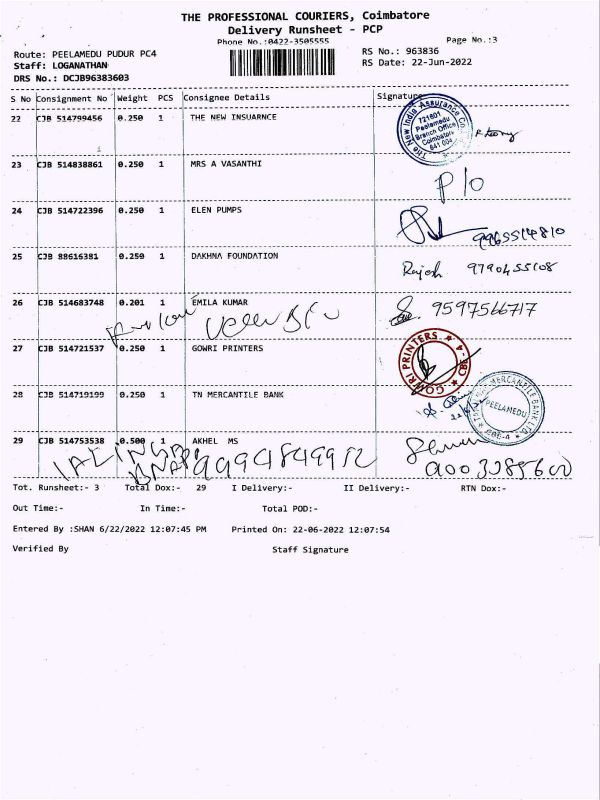 THE PROFESSIONAL COURIERS, Coimbatore
Delivery Runsheet - PCP
Phone No.:0422-3505555 Page No.:3
Route: PEELAMEDU PUDUR PC4 RS No.: 963836
Staff: LOGANATHAN RS Date: 22-Jun-2022
DRS No.: DCJB96383603
S No Consignment No Weight PCS Consignee Details Signature
22 CJB 514799456 0.250 1 THE NEW INSUARNCE
The New India Assurance Co. 721601 Peelamedu Branch Office Coimbatore 641 004
23 CJB 514838861 0.250 1 MRS A VASANTHI
P/o
24 CJB 514722396 0.250 1 ELEN PUMPS
9965514810
25 CJB 88616381 0.250 1 DAKHNA FOUNDATION
Rajesh
26 CJB 514683748 0.201 1 EMILA KUMAR
9597566717
27 CJB 514721537 0.250 1 GOWRI PRINTERS
GOWRI PRINTERS CBE-4
28 CJB 514719199 0.250 1 TN MERCANTILE BANK
MERCANTILE BANK LTD. PEELAMEDU CBE-4
29 CJB 514753538 0.500 1 AKHEL MS
Tot. Runsheet:- 3 Total Dox:- 29 I Delivery:- II Delivery:- RTN Dox:-
Out Time:- In Time:- Total POD:-
Entered By :SHAN 6/22/2022 12:07:45 PM Printed On: 22-06-2022 12:07:54
Verified By Staff Signature